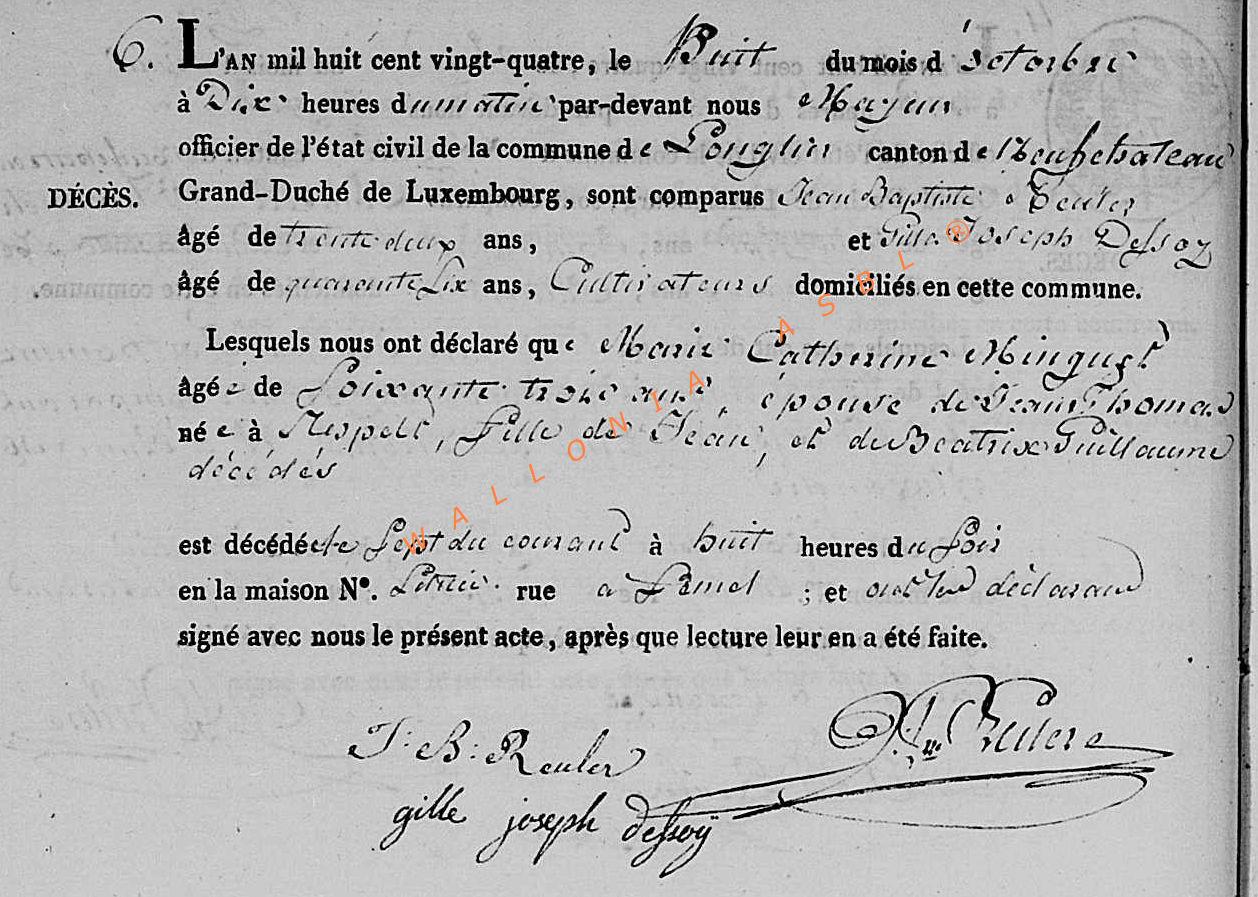 6. L'AN mil huit cent vingt-quatre, le huit du mois d'octobre
à Dix heures du matin par-devant nous Mayeur
officier de l'état civil de la commune de Longlier canton de Neufchateau
DÉCÈS. Grand-Duché de Luxembourg, sont comparus Jean Baptiste Reuler
âgé de trente deux ans, et Gille Joseph Dessoy
âgé de quarante six ans, Cultivateurs domiciliés en cette commune.
Lesquels nous ont déclaré que Marie Catherine Minguet
âgée de Soixante trois ans, épouse de Jean Thomas
née à Respelt, fille de Jean, et de Beatrix Guillaume
décédés
est décédée le sept du courant à huit heures du soir
en la maison N°. rue a ; et ont les déclarans
signé avec nous le présent acte, après que lecture leur en a été faite.
J: B: Reuler
gille joseph dessoÿ
WALLONIA ASBL ®